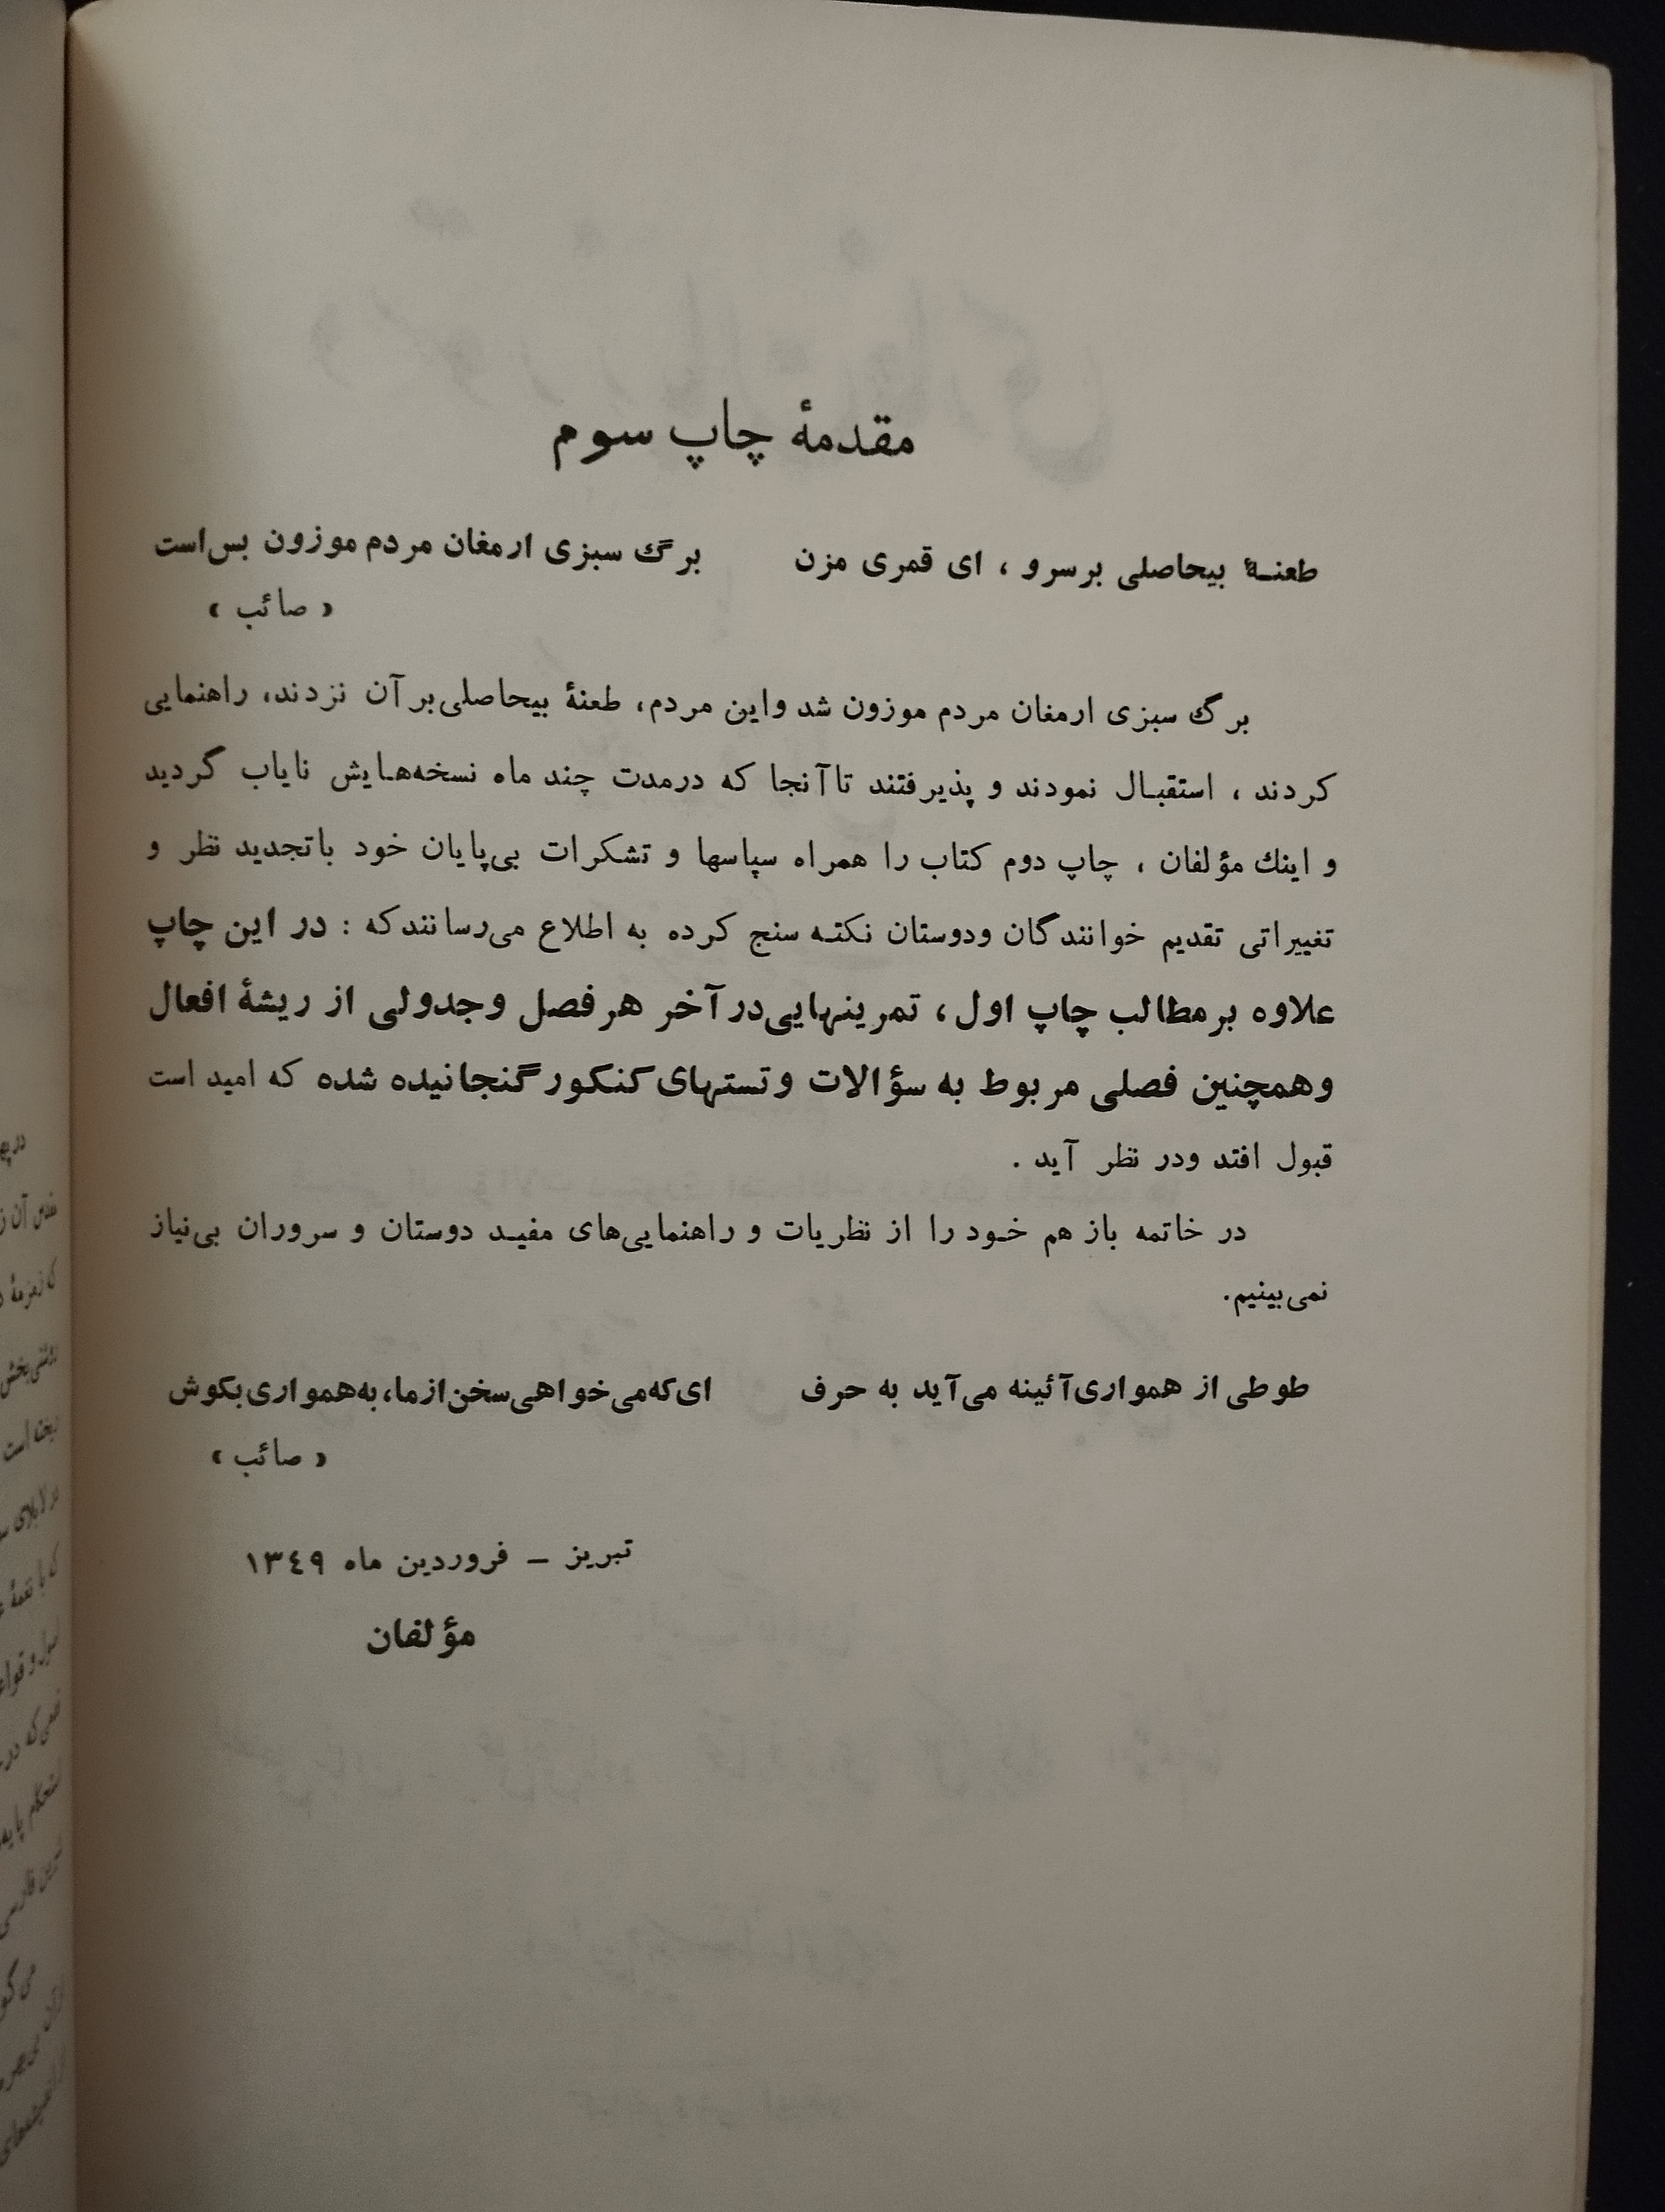 مقدمهٔ چاپ سوم
طعنهٔ بیحاصلی برسرو ، ای قمری مزن برگ سبزی ارمغان مردم موزون بس‌است
« صائب »
برگ سبزی ارمغان مردم موزون شد واین مردم، طعنهٔ بیحاصلی‌بر آن نزدند، راهنمایی
کردند ، استقبال نمودند و پذیرفتند تاآنجا که درمدت چند ماه نسخه‌هایش نایاب گردید
و اینك مؤلفان ، چاپ دوم کتاب را همراه سپاسها و تشکرات بی‌پایان خود باتجدید نظر و
تغییراتی تقدیم خوانندگان ودوستان نکته سنج کرده به اطلاع می‌رسانندکه : در این چاپ
علاوه برمطالب چاپ اول ، تمرینهایی‌درآخر هرفصل وجدولی از ریشهٔ افعال
وهمچنین فصلی مربوط به سؤالات وتستهای‌کنکور گنجانیده شده که امید است
قبول افتد ودر نظر آید .
در خاتمه باز هم خود را از نظریات و راهنمایی‌های مفید دوستان و سروران بی‌نیاز
نمی‌بینیم.
طوطی از همواری‌آئینه می‌آید به حرف ای‌که‌می‌خواهی‌سخن‌ازما،به‌همواری‌بکوش
« صائب »
تبریز – فروردین ماه ١٣٤٩
مؤلفان